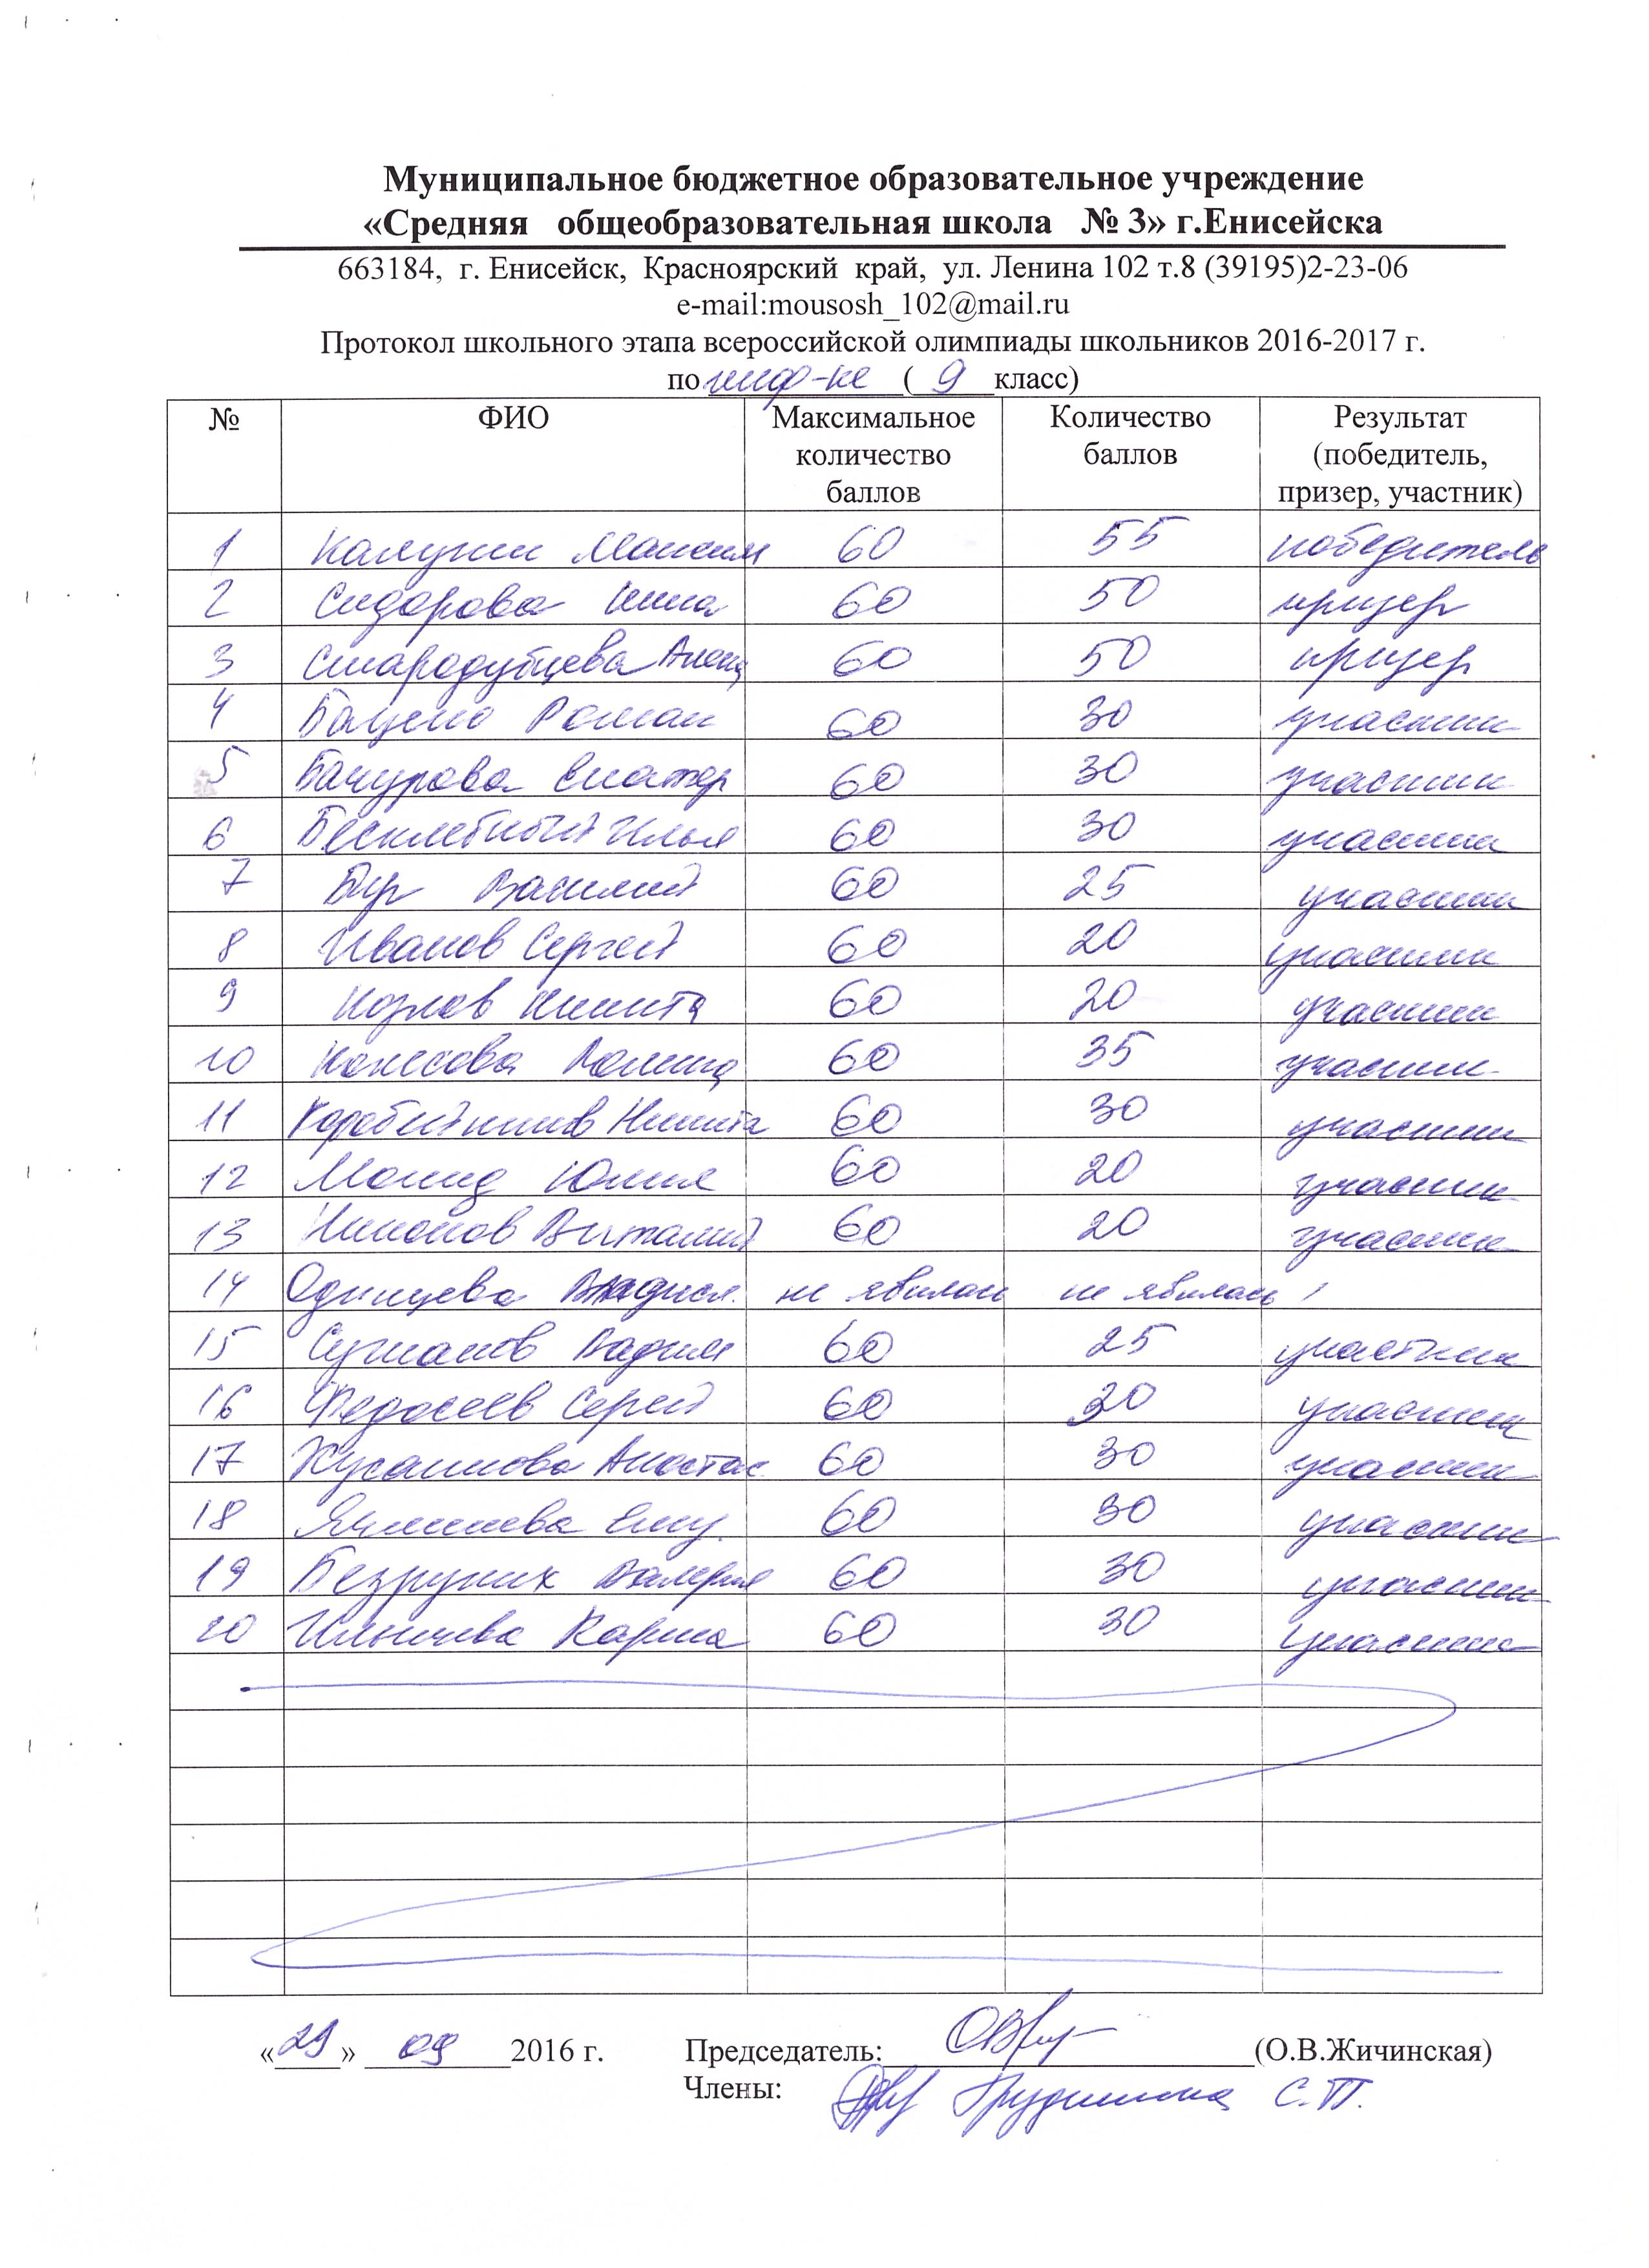 Муниципальное бюджетное образовательное учреждение
«Средняя общеобразовательная школа № 3» г.Енисейска
663184, г. Енисейск, Красноярский край, ул. Ленина 102 т.8 (39195)2-23-06
e-mail:mousosh_102@mail.ru
Протокол школьного этапа всероссийской олимпиады школьников 2016-2017 г.
по инф-ке ( 9 класс)
№ ФИО Максимальное количество баллов Количество баллов Результат (победитель, призер, участник)
1 Калугин Максим 60 55 победитель
2 Сидорова 60 50 призер
3 Стародубцева 60 50 призер
4 Роман 60 30 участник
5 Бачурова Екатер 60 30 участник
6 Илья 60 30 участник
7 Бир Василий 60 25 участник
8 Иванов Сергей 60 20 участник
9 Козлов Никита 60 20 участник
10 Полина 60 35 участник
11 Коробейников Никита 60 30 участник
12 Юлия 60 20 участник
13 Никонов Виталий 60 20 участник
14 Одинцева Владисл. не явилась не явилась
15 Вадим 60 25 участник
16 Федосеев Сергей 60 участник
17 Хусаинова Анастас. 60 30 участник
18 60 30 участник
19 Безруких Валерия 60 30 участник
20 Ильичева Карина 60 30 участник
«29» 09 2016 г. Председатель: (О.В.Жичинская)
Члены: С.П.